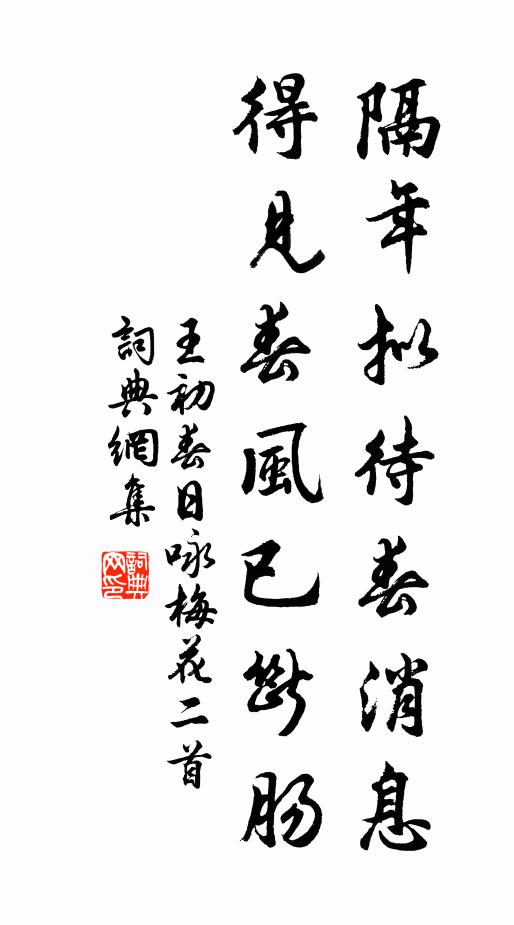 隔年拟待春消息
得見春風已斷腸
王初春日咏梅花二首
詞典網集
詞典
网印